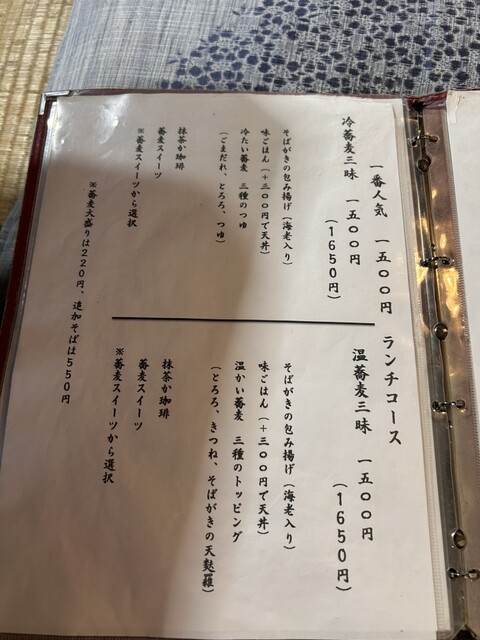 ランチコース
一番人気 一五〇〇円
冷蕎麦三昧 一五〇〇円
(1650円)
そばがきの包み揚げ(海老入り)
味ごはん(+三〇〇円で天丼)
冷たい蕎麦 三種のつゆ
(ごまだれ、とろろ、つゆ)
抹茶か珈琲
蕎麦スイーツ
※蕎麦スイーツから選択
温蕎麦三昧 一五〇〇円
(1650円)
そばがきの包み揚げ(海老入り)
味ごはん(+三〇〇円で天丼)
温かい蕎麦 三種のトッピング
(とろろ、きつね、そばがきの天麩羅)
抹茶か珈琲
蕎麦スイーツ
※蕎麦スイーツから選択
※蕎麦大盛りは220円、追加そばは550円